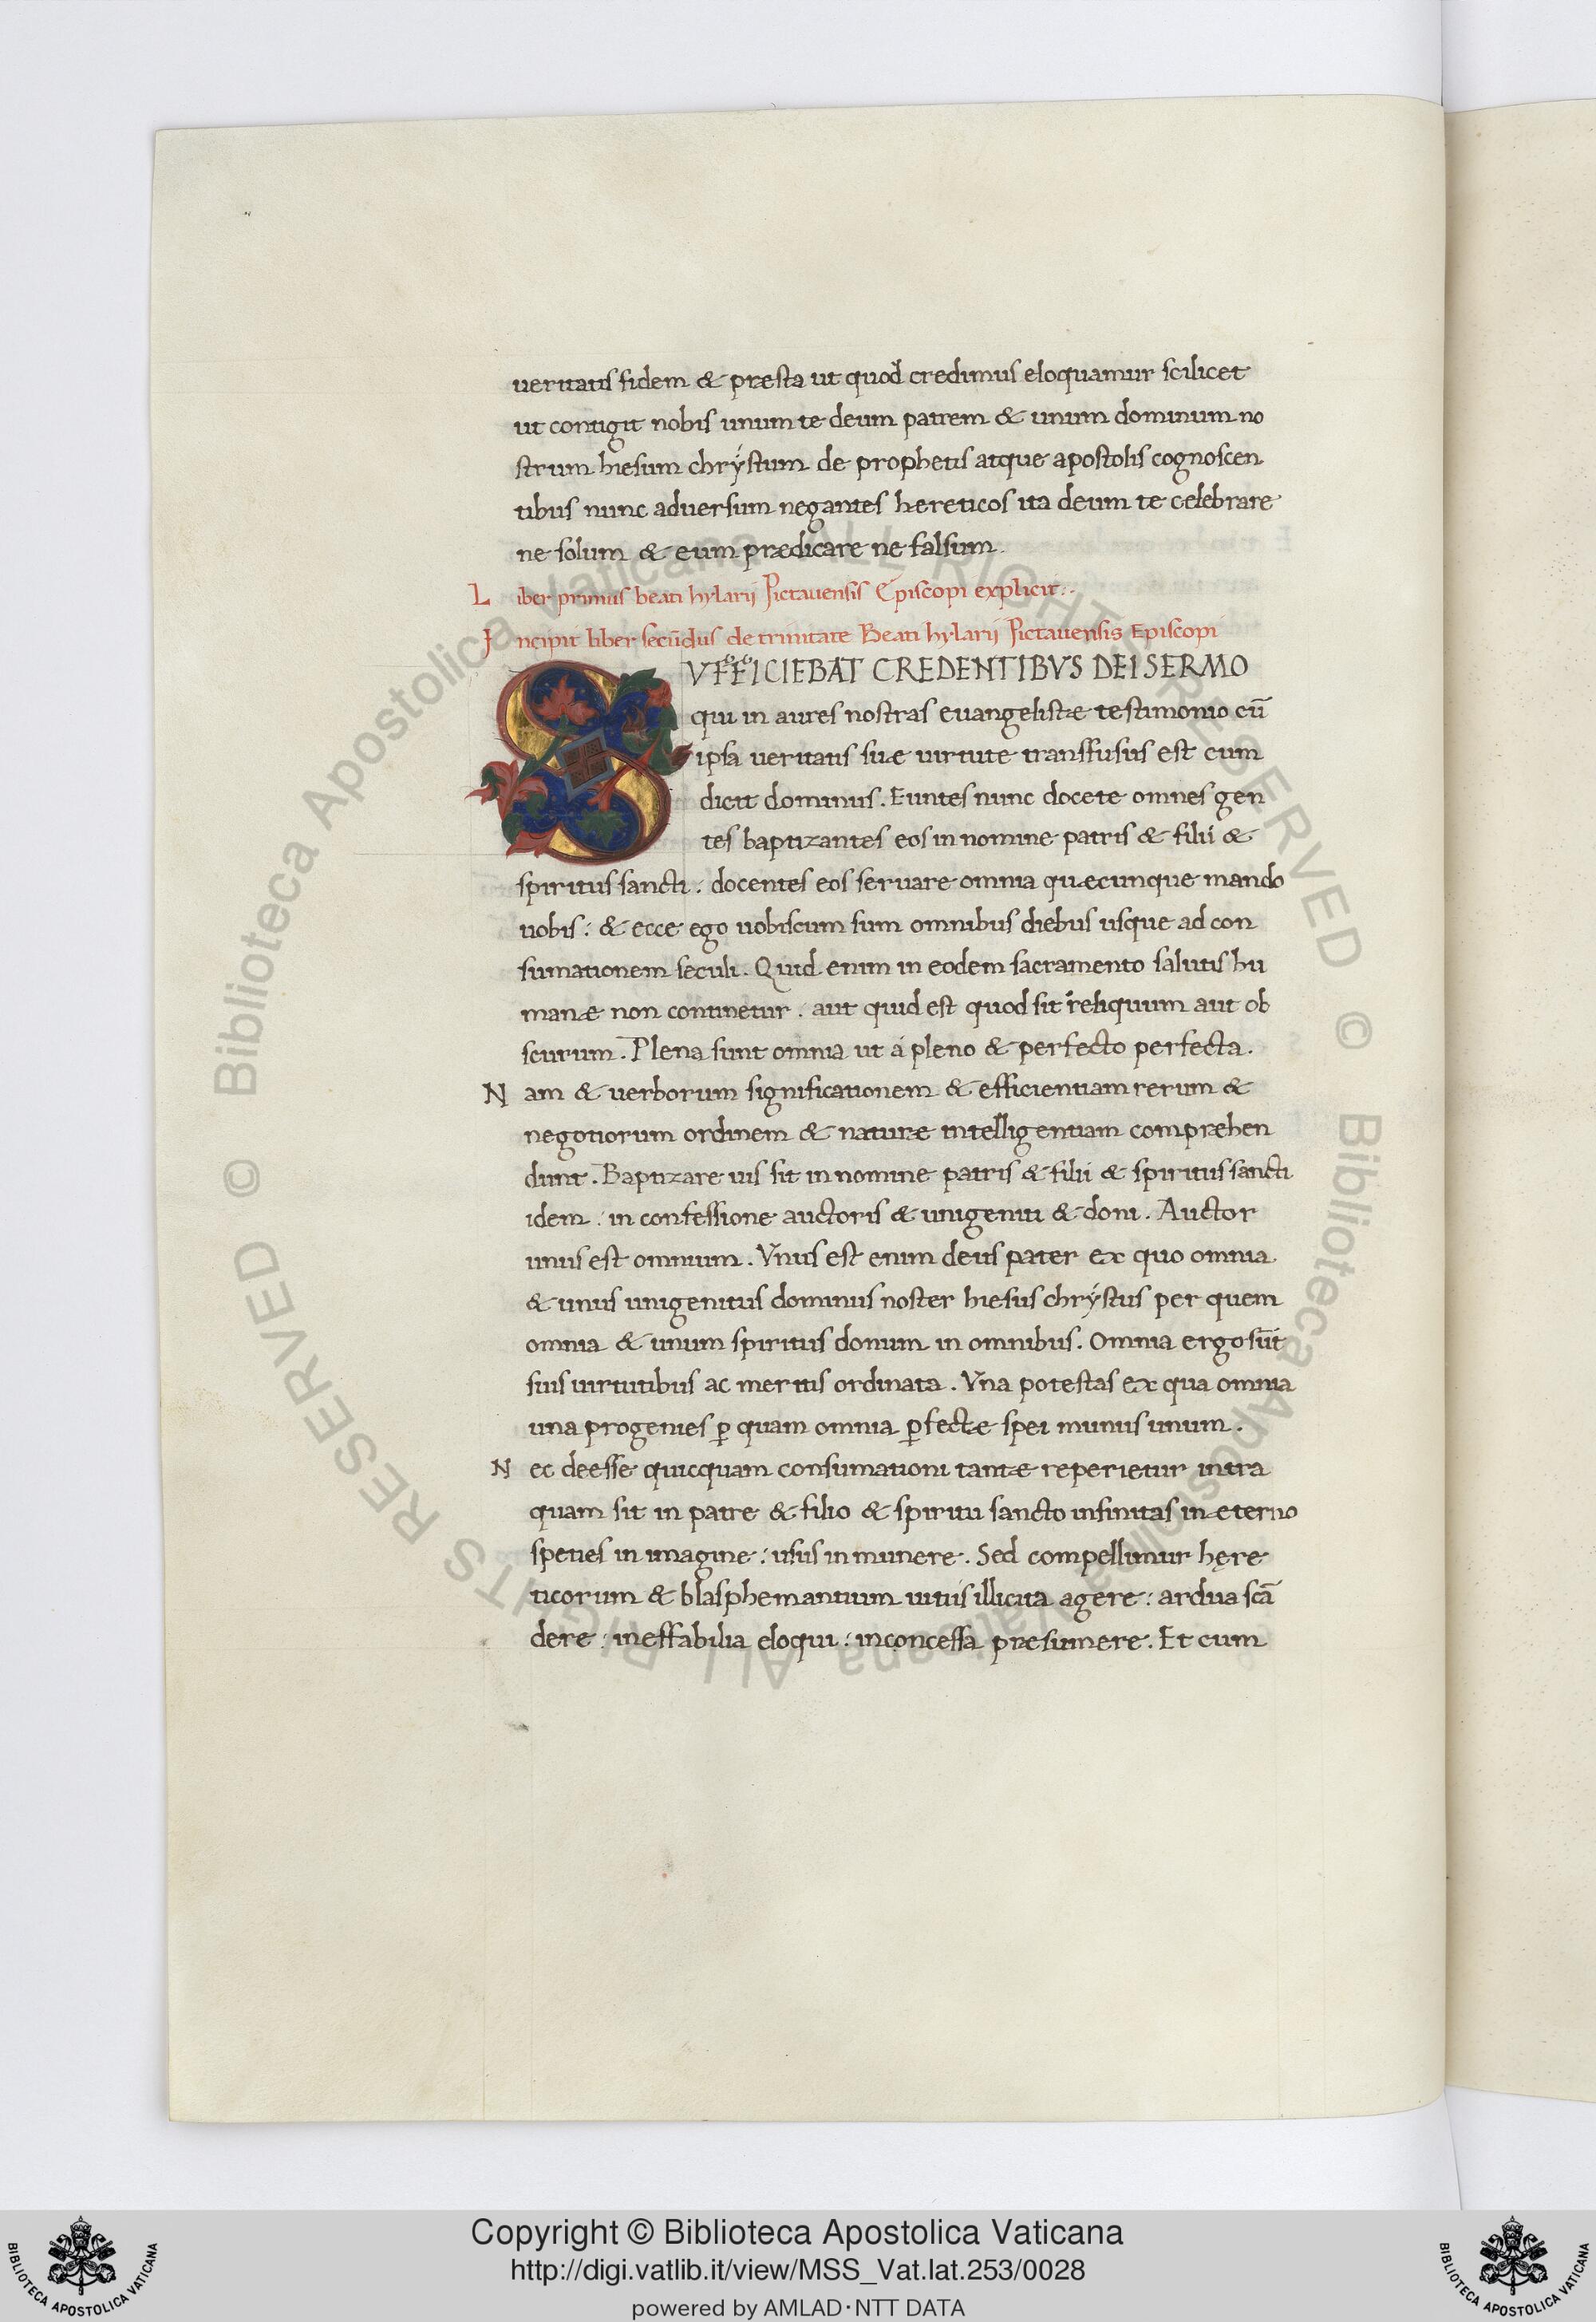 ueritatis fidem & præsta ut quod credimus eloquamur scilicet
ut contigit nobis unum te deum patrem & unum dominum no
strum hiesum chrystum de prophetis atque apostolis cognoscen
tibus nunc aduersum negantes hereticos ita deum te celebrare
ne solum & eum prædicare ne falsum.
Liber primus beati hylarij Pictauensis Episcopi explicit:.
Incipit liber secūdus de trinitate Beati hylarij Pictauensis Episcopi
SVFFICIEBAT CREDENTIBVS DEI SERMO
qui in aures nostras euangelistæ testimonio cū
ipsa ueritatis suæ uirtute transfusus est cum
dicit dominus. Euntes nunc docete omnes gen
tes baptizantes eos in nomine patris & filii &
spiritus sancti: docentes eos seruare omnia quæcunque mando
uobis: & ecce ego uobiscum sum omnibus diebus usque ad con
sumationem seculi. Quid enim in eodem sacramento salutis hu
manæ non continetur. aut quid est quod sit reliquum aut ob
scurum. Plena sunt omnia ut á pleno & perfecto perfecta.
Nam & uerborum significationem & efficientiam rerum &
negotiorum ordinem & naturæ intelligentiam compræhen
dunt. Baptizare uis sit in nomine patris & filii & spiritus sancti
idem: in confessione auctoris & unigeniti & doni. Auctor
unus est omnium. Vnus est enim deus pater ex quo omnia
& unus unigenitus dominus noster hiesus chrystus per quem
omnia & unum spiritus donum in omnibus. Omnia ergo sūt
suis uirtutibus ac meritis ordinata. Vna potestas ex qua omnia
una progenies ꝑ quam omnia ꝑfectæ spei munus unum.
Nec deesse quicquam consumationi tantæ reperietur intra
quam sit in patre & filio & spiritu sancto infinitas in æterno
speties in imagine: usus in munere. Sed compellimur hęre
ticorum & blasphemantium uitiis illicita agere: ardua scā
dere: ineffabilia eloqui: inconcessa præsumere. Et cum
© Biblioteca Apostolica Vaticana ALL RIGHTS RESERVED
© Biblioteca Apostolica Vaticana ALL RIGHTS RESERVED
Copyright © Biblioteca Apostolica Vaticana
http://digi.vatlib.it/view/MSS_Vat.lat.253/0028
powered by AMLAD·NTT DATA
BIBLIOTECA APOSTOLICA VATICANA
BIBLIOTECA APOSTOLICA VATICANA